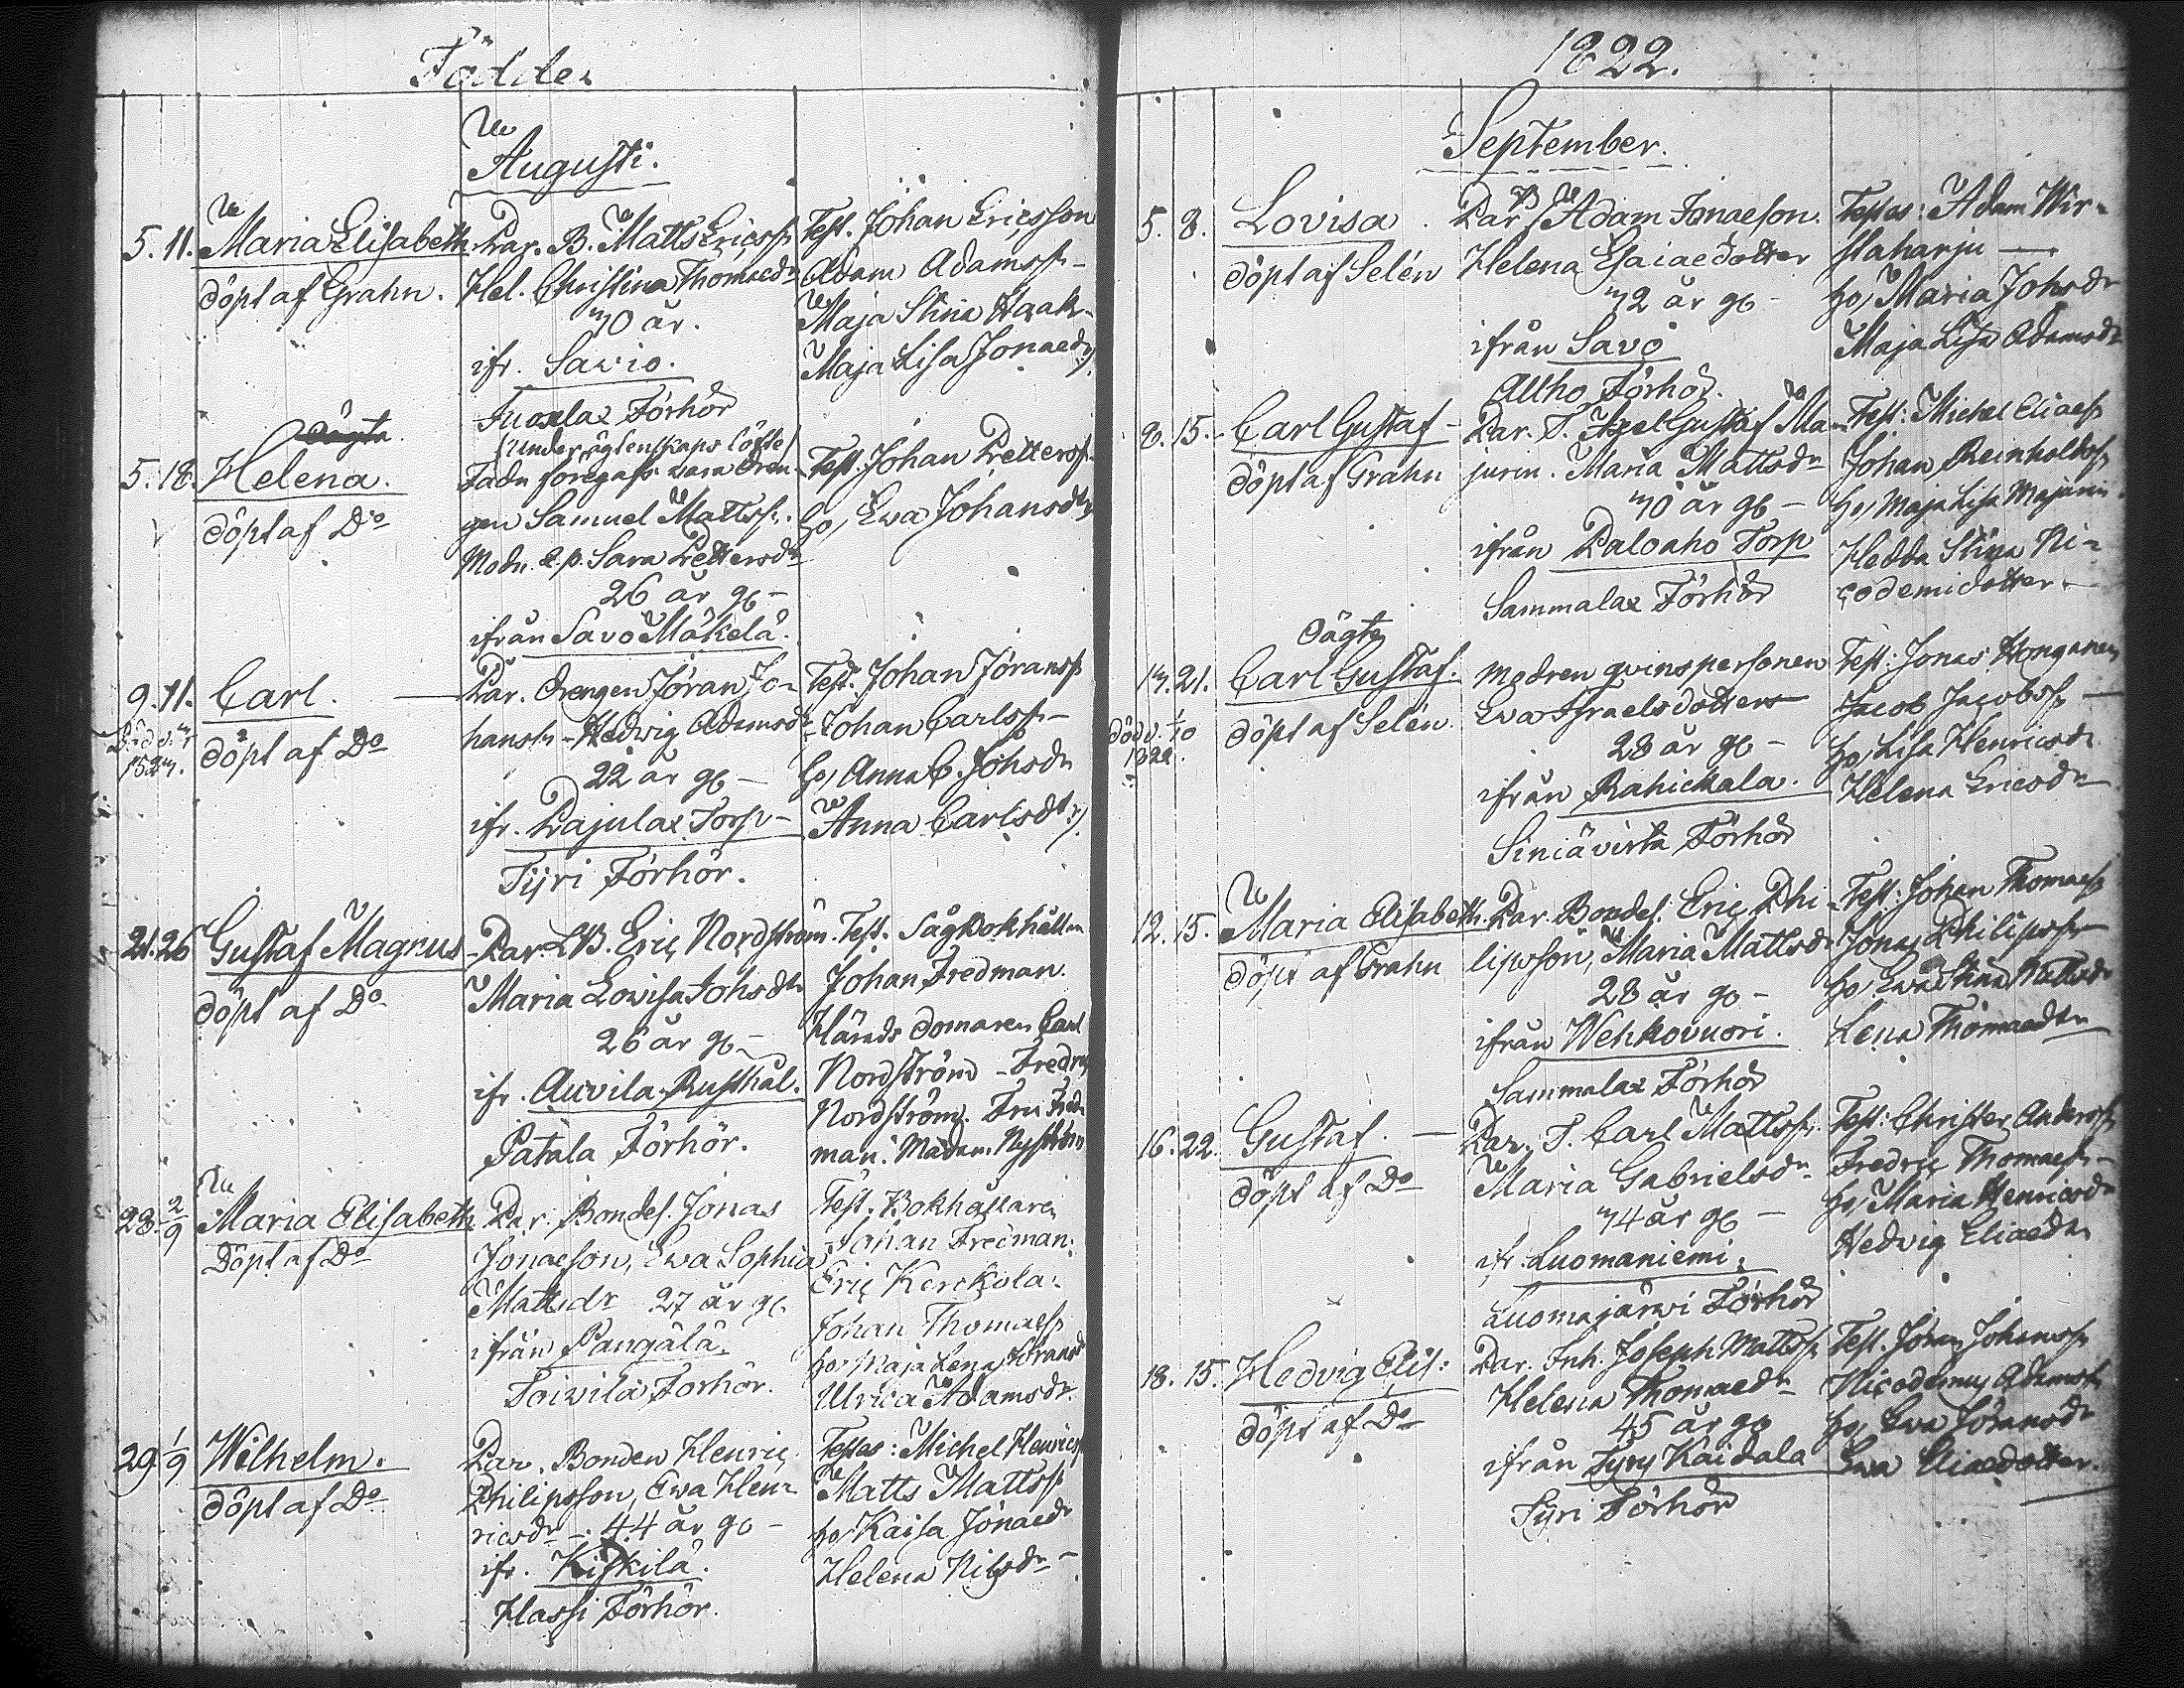 Födde
Augusti.
5. 11. Maria Elisabeth
döpt af Grahn.
Par. B. Matts Ericss.
Hel. Christina Thomaedr
ifr. Savio.
Förhör
Test. Johan Ericsson
Adam Adamss.
Maja Stina
Maja Lisa Jonaedr
oägta
5. 18. Helena.
döpt af Do
(under ägtenskaps löfte)
Fadr föregafs vara Dren-
gen Samuel Mattss.
Modr. Sara Pettersdr
26 år gl
ifrån Savo Mäkelä.
Test. Johan Petterss.
Ewa Johansdr
9. 11. Carl.
döpt af Do
Par. Drengen Jöran Jo-
hanss. Hedvig Adamsdr
22 år gl
ifr. Pajulax Torp
Tyri Förhör.
Test. Johan Jöranss.
Johan Carlss.
Anna C. Johsdr
Anna Carlsdr
21. 26 Gustaf Magnus
döpt af Do
Par. LB. Eric Nordström.
Maria Lovisa Johsdr
26 år gl
ifr. Auvila Rusthål.
Patala Förhör.
Test. Såg Bokhållr
Johan Fredman.
Härads domaren Carl
Nordström - Fredric
Nordström. Fru Fred-
man. Madam. Nyström
28. 2/9 Maria Elisabeth
Döpt af Do
Par. Bondes. Jonas
Jonaeson, Ewa Sophia
Mattsdr 27 år gl
ifrån Pangälä.
Toivila Förhör.
Test. Bokhållaren
Johan Fredman.
Eric Kerckola.
Johan Thomaess.
Maja Lena Jöransdr
Ulrica Adamsdr.
29 1/9 Wilhelm.
döpt af Do
Par. Bonden Henric
Philipsson, Ewa Hen-
ricsdr 44 år gl
ifr. Kiskilä.
Hassi Förhör.
Testes: Michel Henricss.
Matts Mattss.
Kaisa Jonaedr
Helena Nilsdr
1822.
September.
5. 8. Lovisa
döpt af Selén
Par. B. Adam Jonaeson.
Helena Esaiaedotter
42 år gl
ifrån Savo
Altho Förhör.
Testes: Adam Wir-
staharju
Maria Johsdr
Maja Lisa Adamsdr
8. 15. Carl Gustaf
döpt af Grahn
Par. T. Axel Gustaf Ma-
jurin. Maria Mattsdr
40 år gl
ifrån Paloaho Torp
Sammalax Förhör
Test: Michel Eliaess.
Johan Reinholdss.
Maja Lisa Majurin.
Hedda Stina Ni-
codemidotter
Oägta
17. 21. Carl Gustaf.
döpt af Selén.
död d. 1/10
1822.
Modren qvinspersonen
Eva Israelsdotter
28 år gl
ifrån Rahickala.
Siniävirta Förhör
Test: Jonas Honganen
Jacob Jacobss.
Lisa Henricsdr
Helena Ericsdr
12. 15. Maria Elisabeth.
döpt af Grahn
Par. Bondes. Eric Phi-
lipsson, Maria Mattsdr
28 år gl
ifrån Wehkovuori.
Sammalax Förhör
Test: Johan Thomaess.
Jonas Philipss.
Ewa Stina Mattsdr
Lena Thomaedr
16. 22. Gustaf.
döpt af Do
Par. T. Carl Mattss.
Maria Gabrielsdr
44 år gl
ifr. Luomaniemi.
Luomajärvi Förhör
Test: Christer Anderss.
Fredric Thomaess.
Maria Henricsdr
Hedvig Eliaedr
18. 15. Hedvig Elis:
döpt af Do
Par. Inh. Joseph Mattss.
Helena Thomaedr
45 år gl
ifrån Tyry Kaidala
Tyri Förhör
Test. Jöran Johanss.
Nicodemus Adamss.
Ewa Jöransdr
Ewa Eliaedotter.